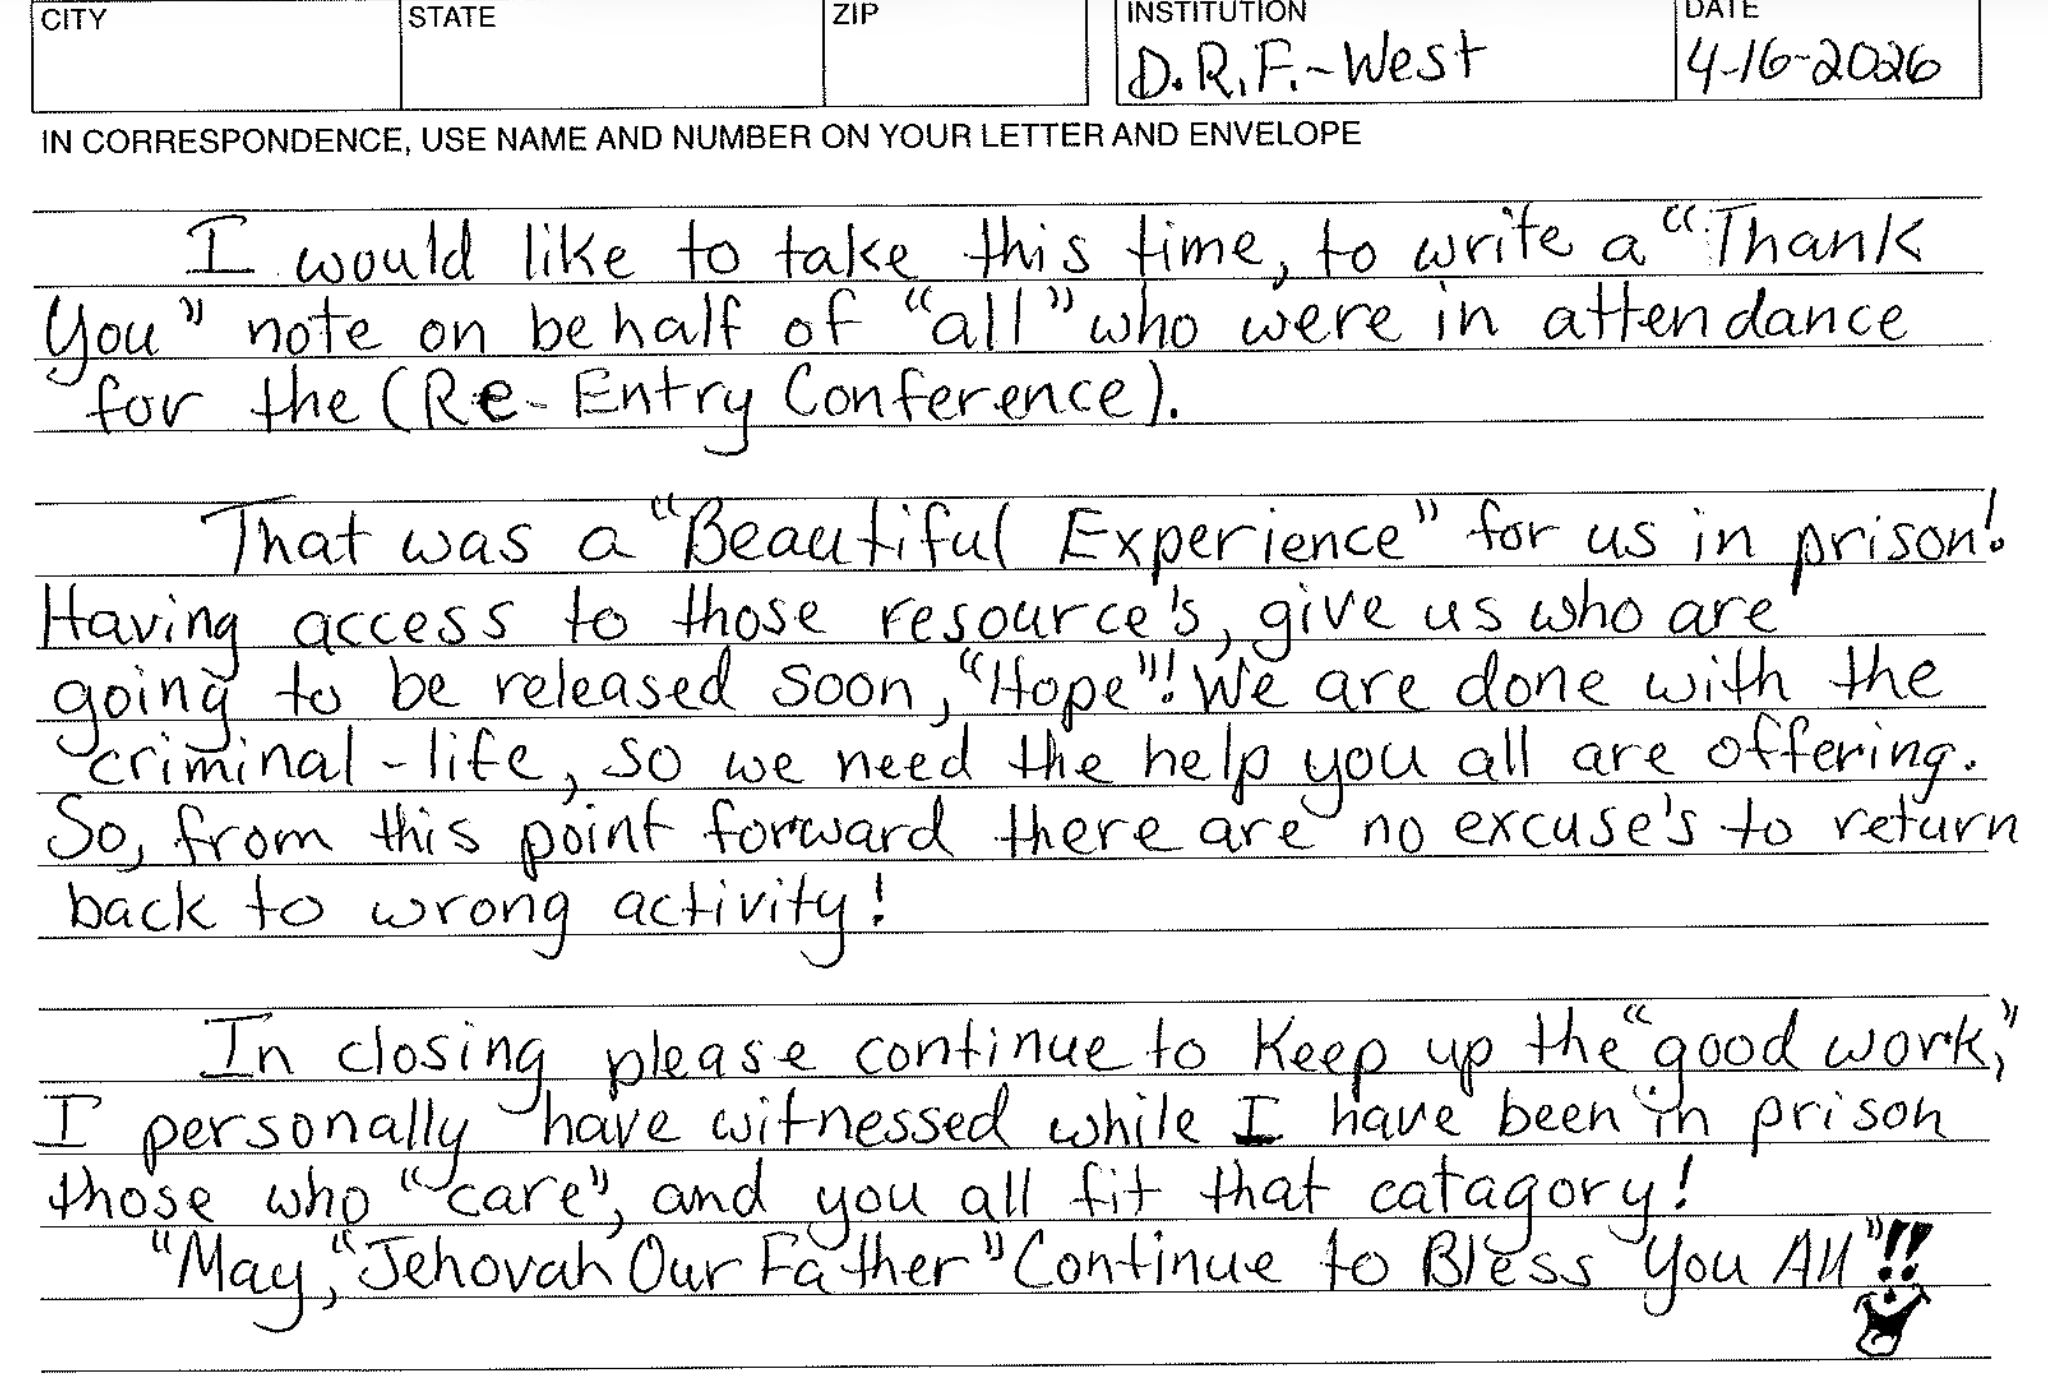 CITY STATE ZIP INSTITUTION DATE
D.R.F.-West 4-16-2026
IN CORRESPONDENCE, USE NAME AND NUMBER ON YOUR LETTER AND ENVELOPE
I would like to take this time, to write a "Thank
You" note on behalf of "all" who were in attendance
for the (Re-Entry Conference).
That was a "Beautiful Experience" for us in prison!
Having access to those resource's, give us who are
going to be released soon, "Hope"! We are done with the
criminal-life, so we need the help you all are offering.
So, from this point forward there are no excuse's to return
back to wrong activity!
In closing please continue to keep up the "good work,"
I personally have witnessed while I have been in prison
those who "care", and you all fit that catagory!
"May, "Jehovah Our Father" Continue to Bless You All"!!